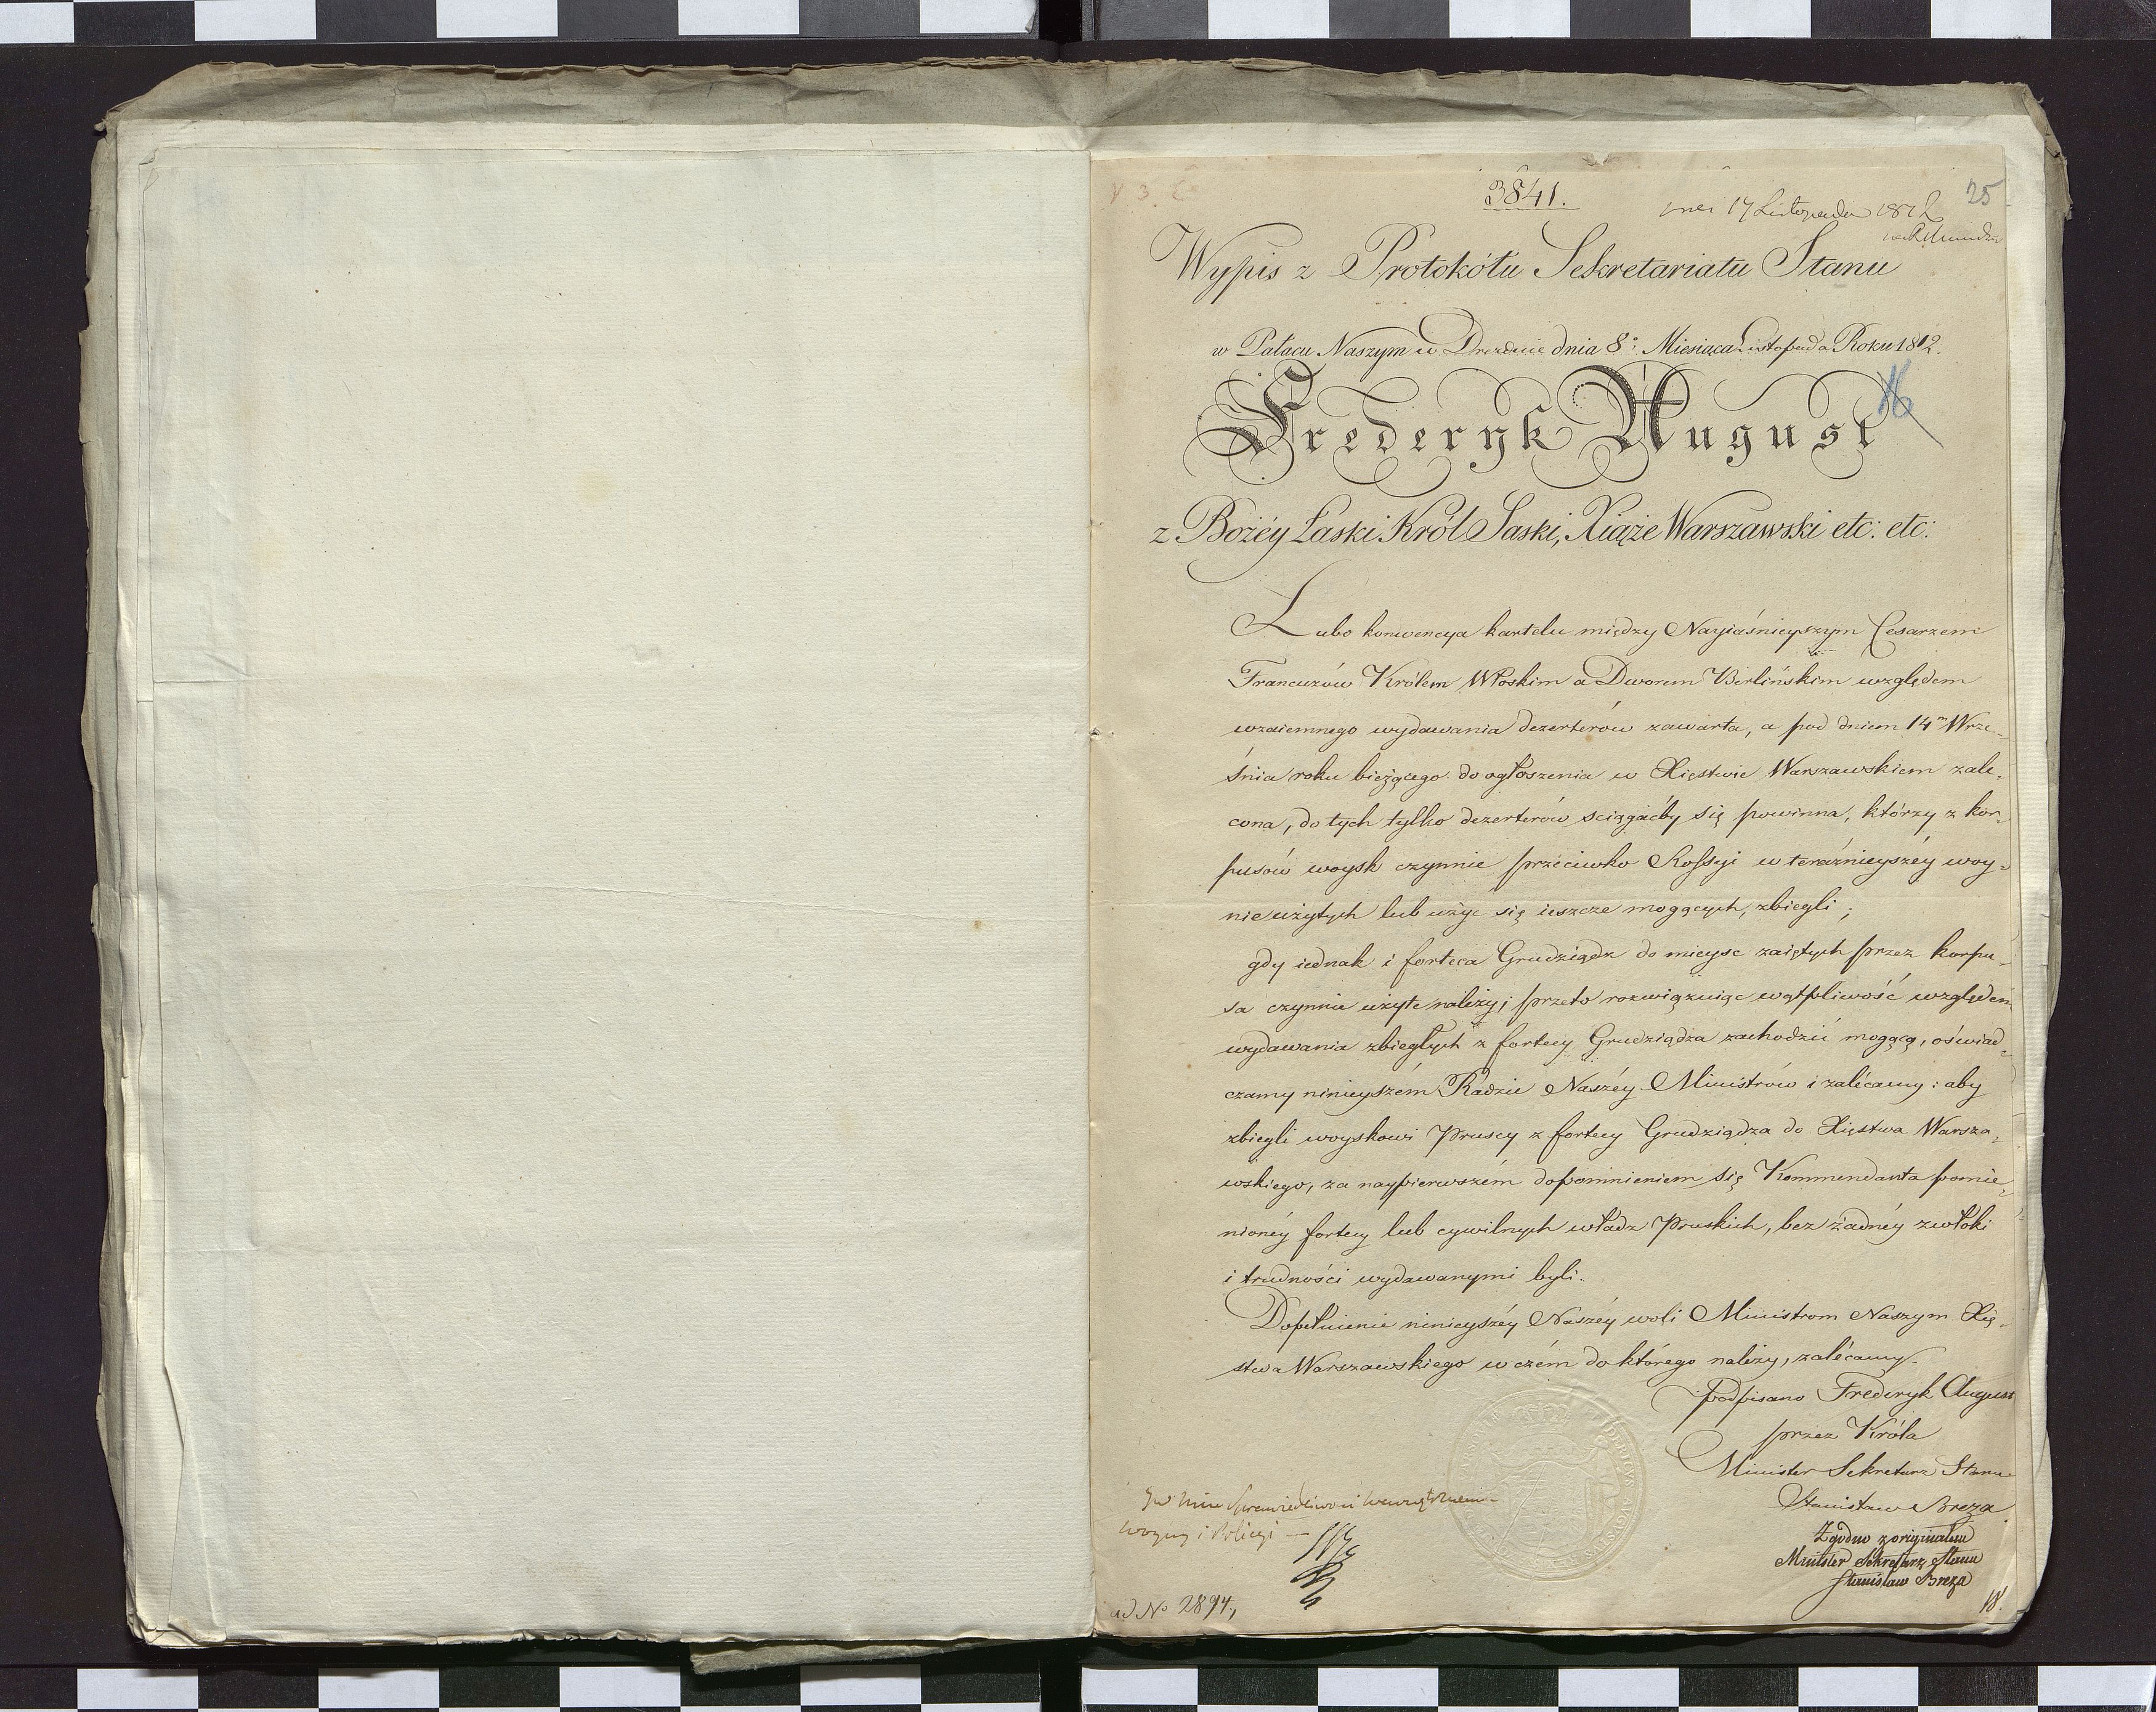 3841.
25
17 Listopada 1812
Wypis z Protokółu Sekretariatu Stanu
w Pałacu Naszym w Dreznie dnia 8º Miesiąca Listopada Roku 1812.
16
Frederyk August
z Bożéy Łaski Król Saski, Xiąże Warszawski etc: etc:
Lubo konwencya kartelu między Nayiaśnieyszym Cesarzem
Francuzów Królem Włoskim a Dworem Berlińskim względem
wzaiemnego wydawania dezerterów zawarta, a pod dniem 14m Wrze-
śnia roku bieżącego do ogłoszenia w Xięstwie Warszawskiem zale-
cona, do tych tylko dezerterów sciągáćby się powinna, którzy z kor-
pusów woysk czynnie przeciwko Rossyi w teraźnieyszéy woy-
nie użytych lub użyc się ieszcze mogących, zbiegli;
gdy iednak i forteca Grudziądz do mieysc zaiętych przez korpu-
sa czynnie użyte należy; przeto rozwiązuiąc wątpliwość względem
wydawania zbiegłych z fortecy Grudziądza zachodzić mogącą, oświad-
czamy ninieyszém Radzie Naszéy Ministrów i zalécamy: aby
zbiegli woyskowi Pruscy z fortecy Grudziądza do Xięstwa Warsza-
wskiego, za naypierwszém dopomnieniem się Kommendanta pomie-
nionéy fortecy lub cywilnych władz Pruskich, bez żadnéy zwłoki
i trudności wydawanymi byli.
Dopełnienie ninieyszéy Naszéy woli Ministrom Naszym Xię-
stwa Warszawskiego w czém do którego należy, zalécamy.
podpisano Frederyk August
przez Króla
Minister Sekretarz Stanu
Stanisław Breza
Zgodno z originałem
Minister Sekretarz Stanu
Stanisław Breza
Sprawiedliwości Wewnętrznemu
Woyny i Policyi —
ad No 2894,
18.